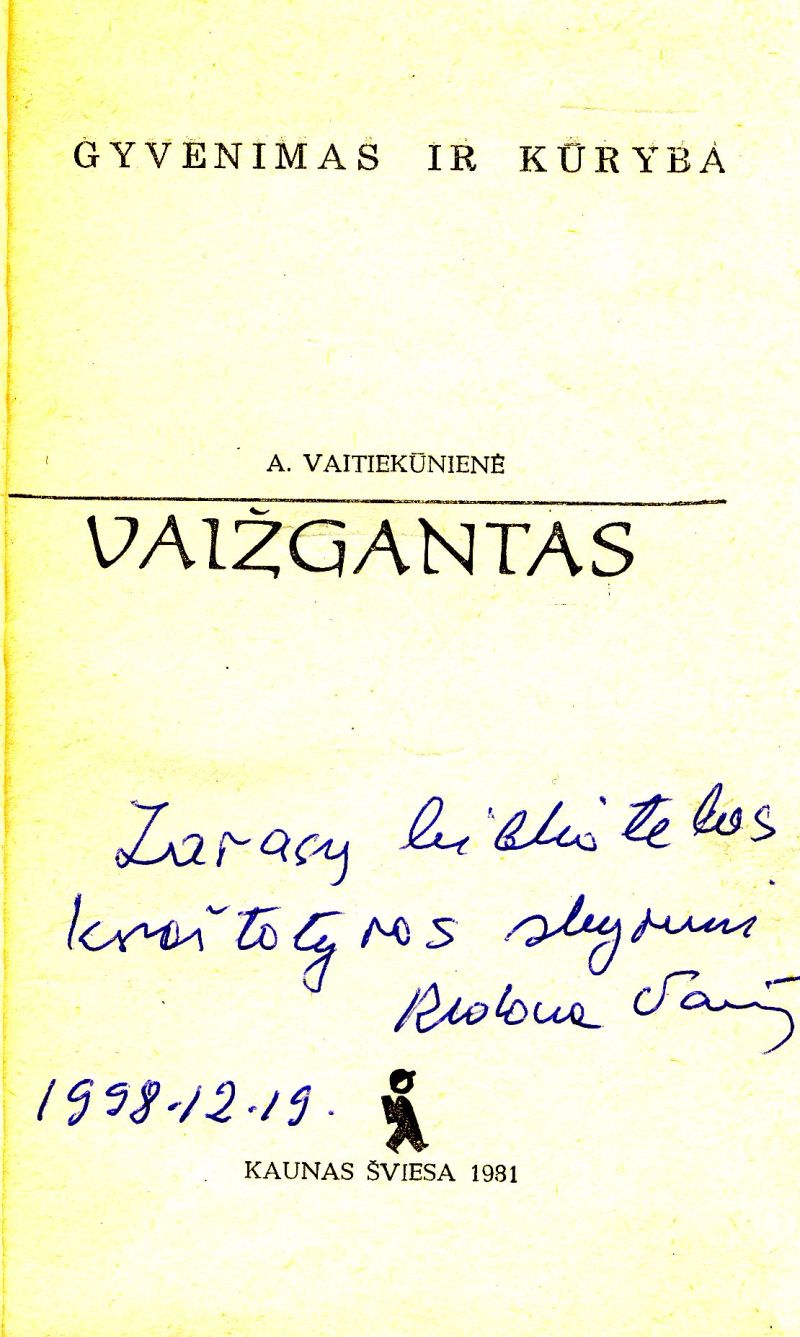 GYVENIMAS IR KŪRYBA
A. VAITIEKŪNIENĖ
VAIŽGANTAS
Zarasų bibliotekos
kraštotyros skyriui
1998.12.19.
KAUNAS ŠVIESA 1981